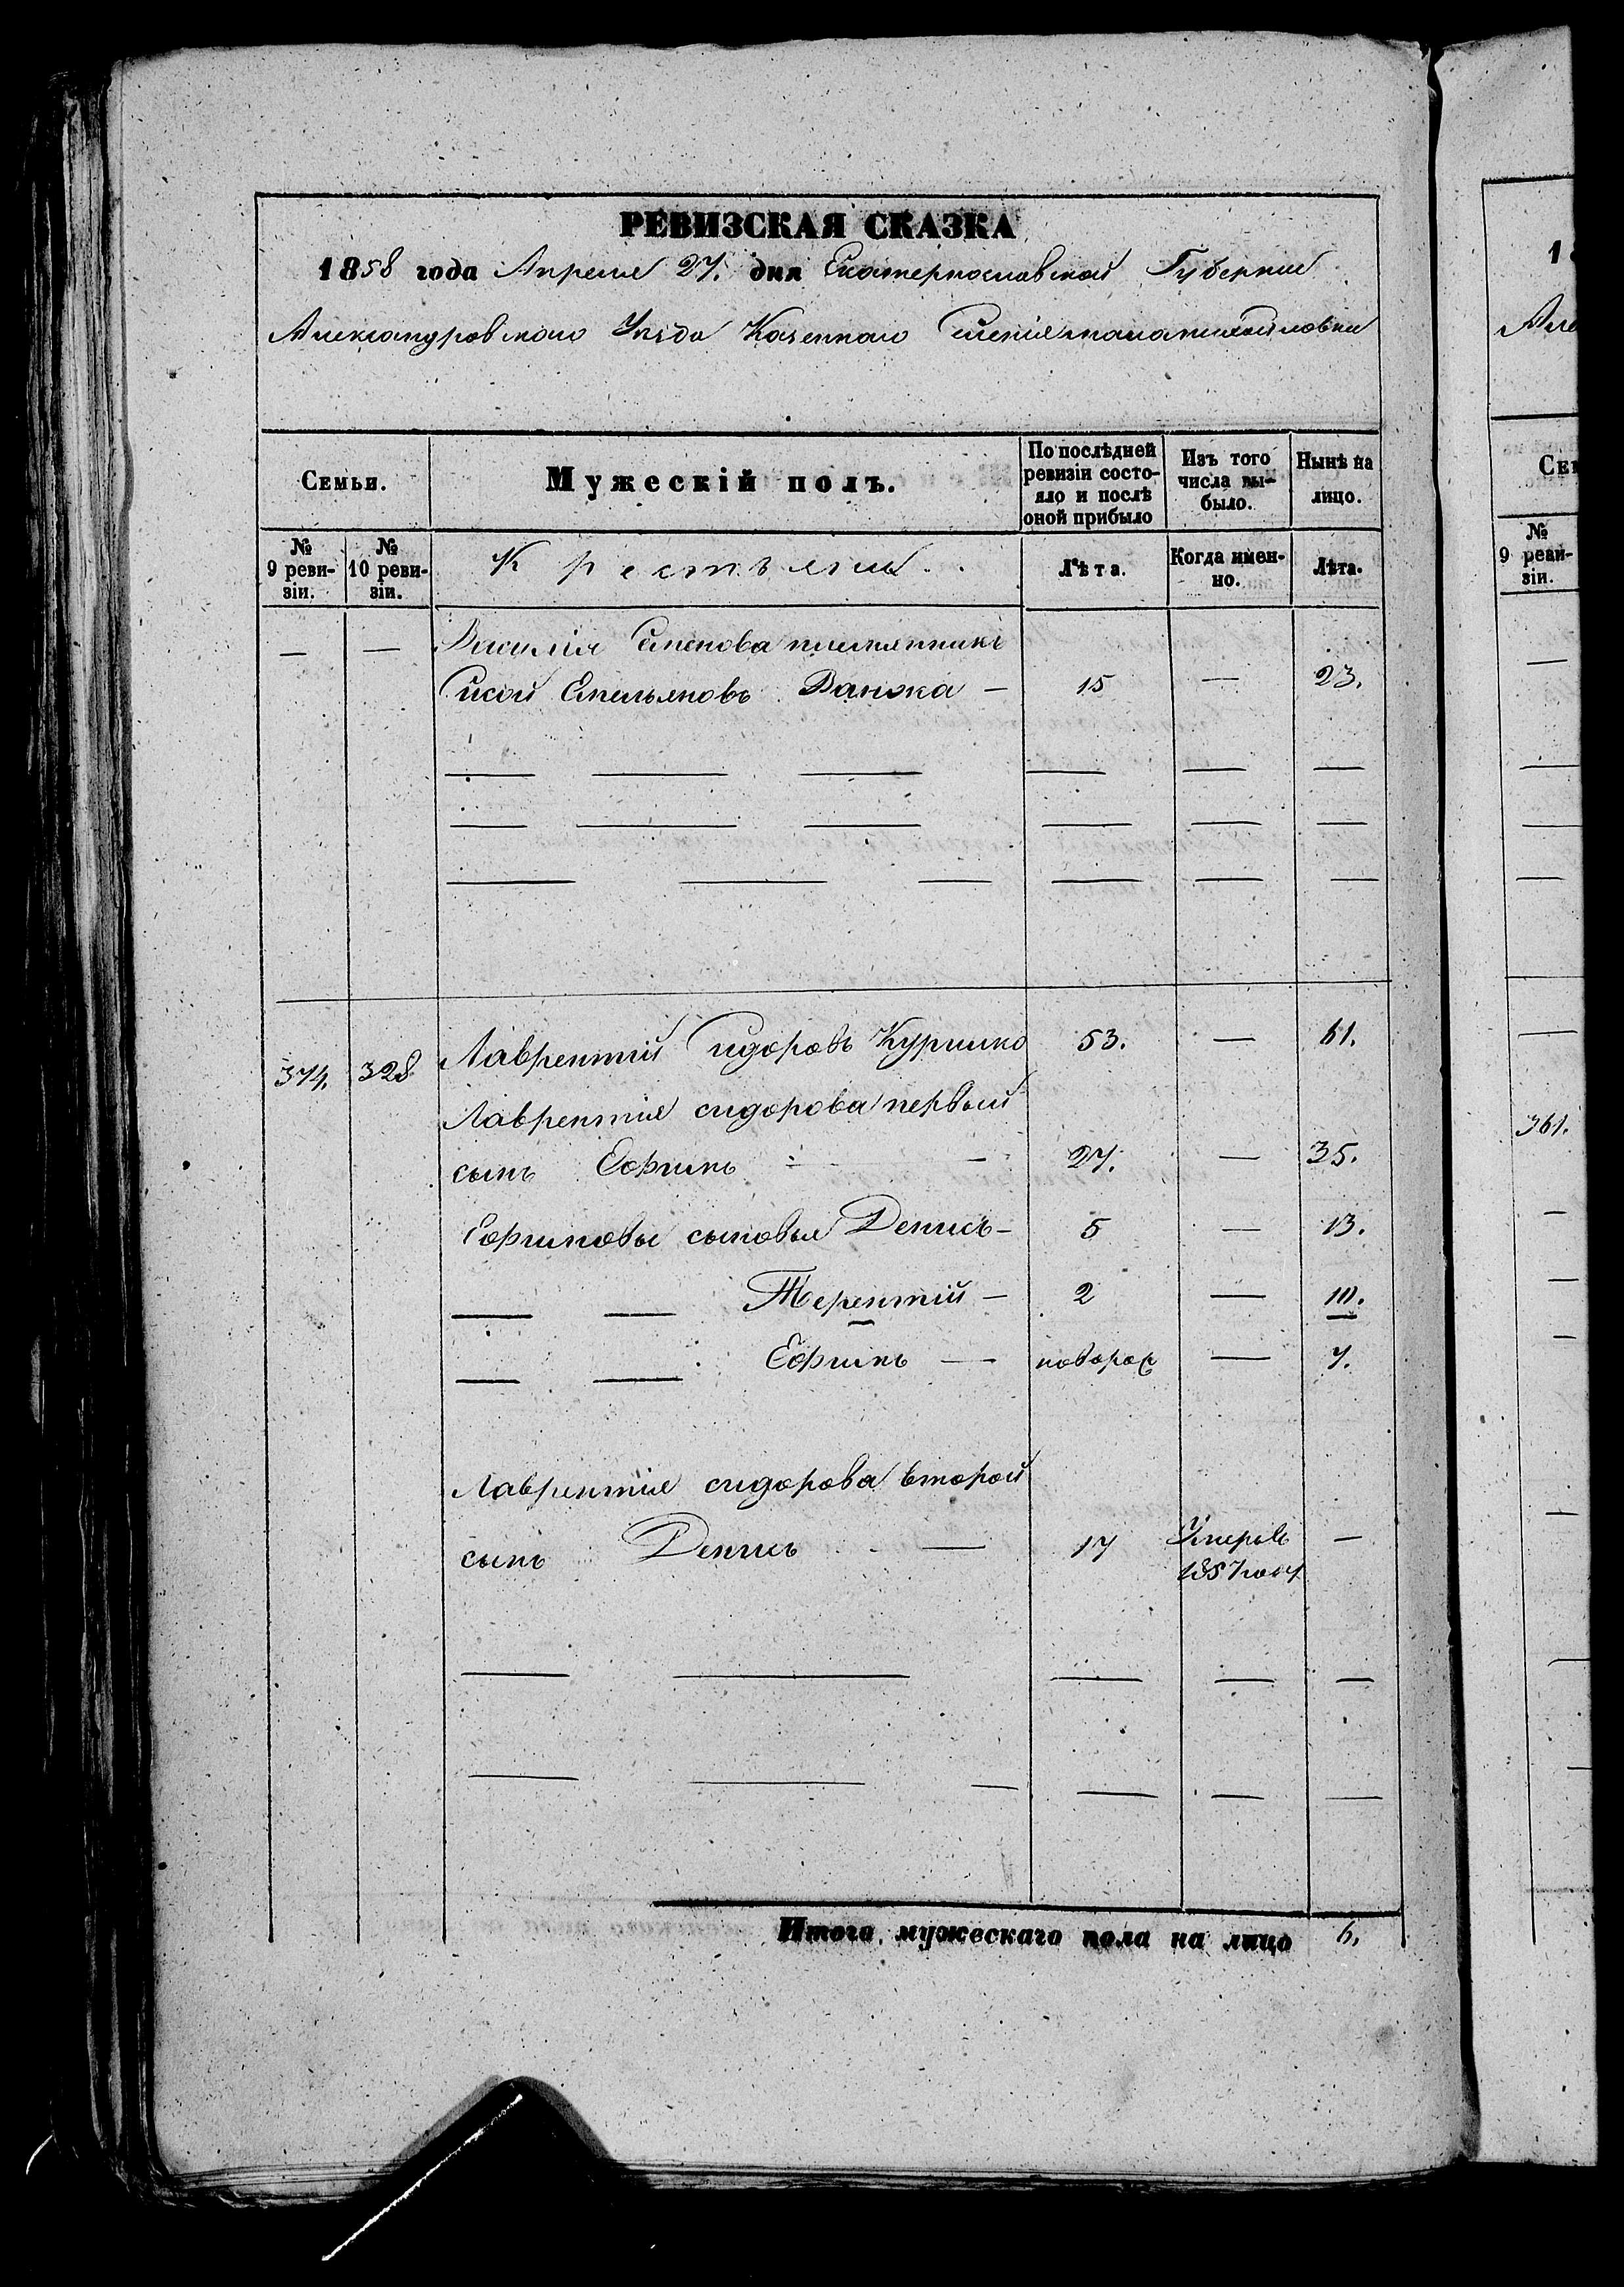 РЕВИЗСКАЯ СКАЗКА
1858 года Апреля 27. дня Екатеринославской Губернии
Александровскаго Уѣзда Казеннаго Селенія
Семьи.
Мужескій полъ.
По послѣдней ревизіи состояло и послѣ оной прибыло
Изъ того числа выбыло.
Нынѣ на лицо.
№ 9 ревизіи.
№ 10 ревизіи.
Крестьяне.
Лѣта.
Когда именно.
Лѣта.
— — Василія Семенова племянникъ
Сисой Емельяновъ Ванжа — 15 — 23.
374. 328 Лаврентій Сидоровъ Куришко 53. — 61.
Лаврентія сидорова первый
сынъ Ефимъ — 27. — 35.
Ефимовы сыновья Денисъ — 5 — 13.
— — Терентій — 2 — 10.
— — Ефимъ — новорож — 7.
Лаврентія сидорова второй
сынъ Денисъ — 17 Умеръ въ —
1857 году
Итого мужескаго пола на лицо 6.
1
Але
Сем
№ 9 ревизіи.
361.